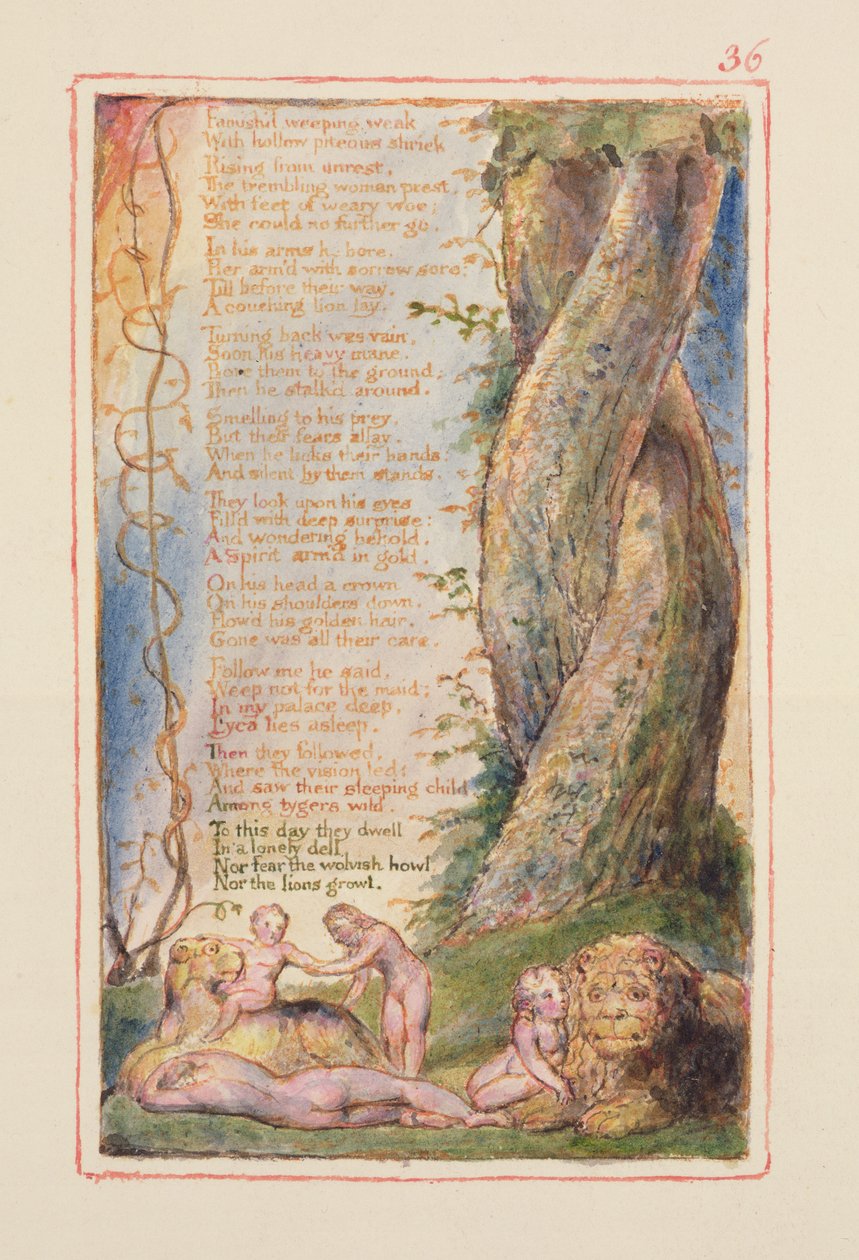 36
Famish'd, weeping, weak
With hollow piteous shriek
Rising from unrest,
The trembling woman prest,
With feet of weary woe;
She could no further go.
In his arms he bore.
Her arm'd with sorrow sore:
Till before their way,
A couching lion lay.
Turning back was vain,
Soon his heavy mane.
Bore them to the ground;
Then he stalk'd around.
Smelling to his prey.
But their fears allay.
When he licks their hands.
And silent by them stands.
They look upon his eyes
Fill'd with deep surprise:
And wondering behold.
A Spirit arm'd in gold.
On his head a crown
On his shoulders down,
Flow'd his golden hair.
Gone was all their care.
Follow me he said,
Weep not for the maid;
In my palace deep,
Lyca lies asleep.
Then they followed,
Where the vision led:
And saw their sleeping child
Among tygers wild.
To this day they dwell
In a lonely dell
Nor fear the wolvish howl,
Nor the lions growl.